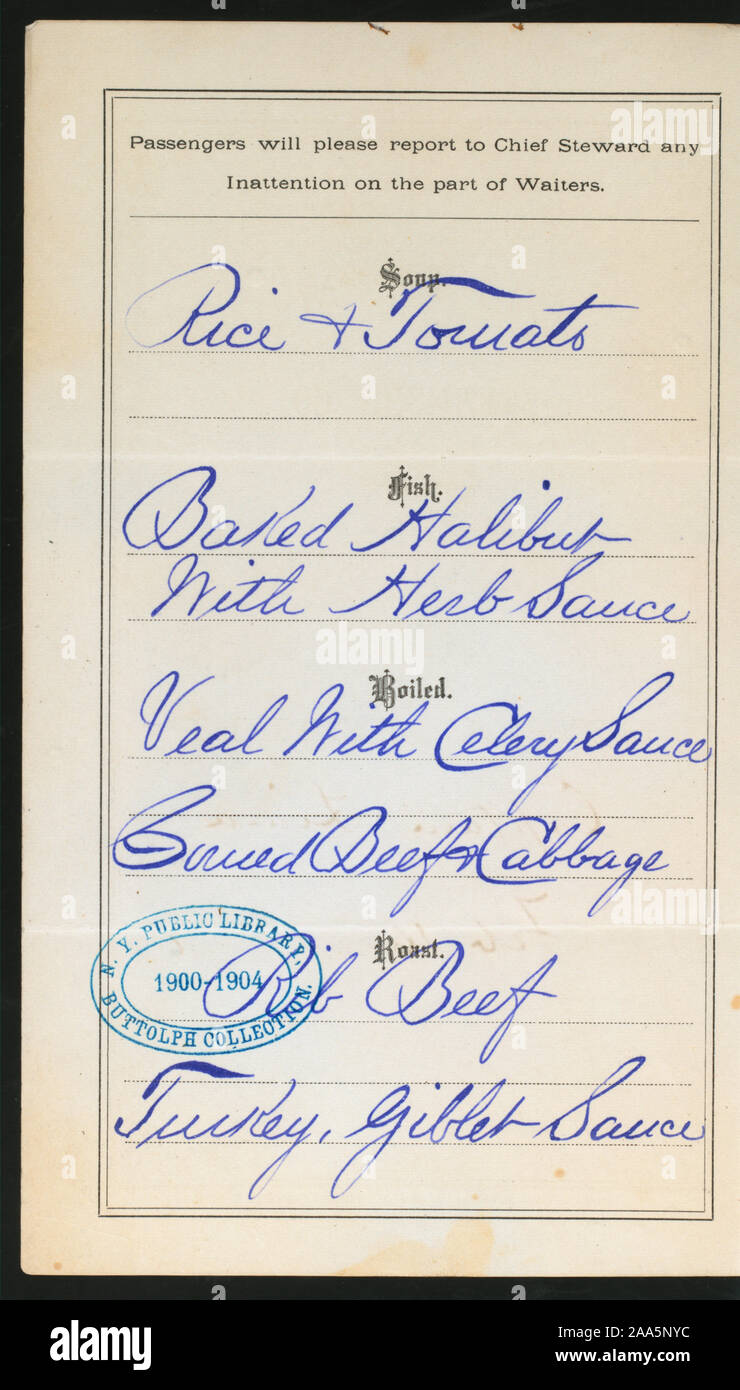 Passengers will please report to Chief Steward any
Inattention on the part of Waiters.
Soup.
Rice & Tomato
Fish.
Baked Halibut
With Herb Sauce
Boiled.
Veal With Celery Sauce
Corned Beef & Cabbage
Roast.
N. Y. PUBLIC LIBRARY,
1900-1904
BUTTOLPH COLLECTION.
Rib Beef
Turkey, Giblet Sauce
a
alamy
alamy
Image ID: 2AA5NYC
www.alamy.com